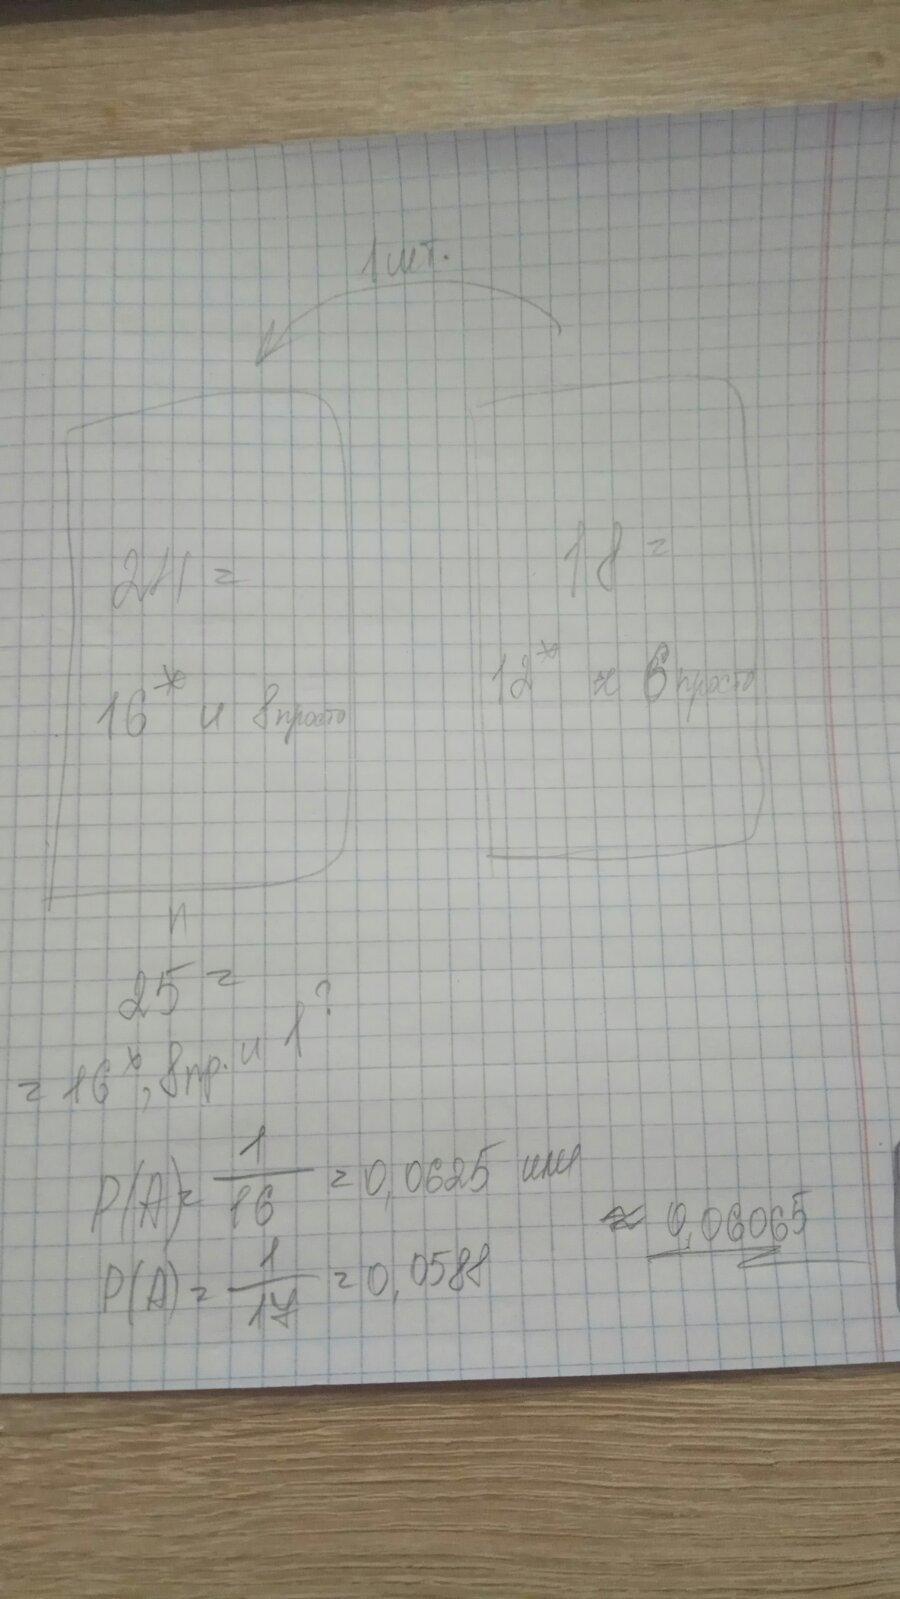 1 шт.
24 =
16* и 8 просто
18 =
12* и 6 просто
n
25 =
= 16*, 8 пр. и 1?
P(A) = 1/16 = 0,0625 или
P(A) = 1/17 = 0,0588
≈ 0,06065